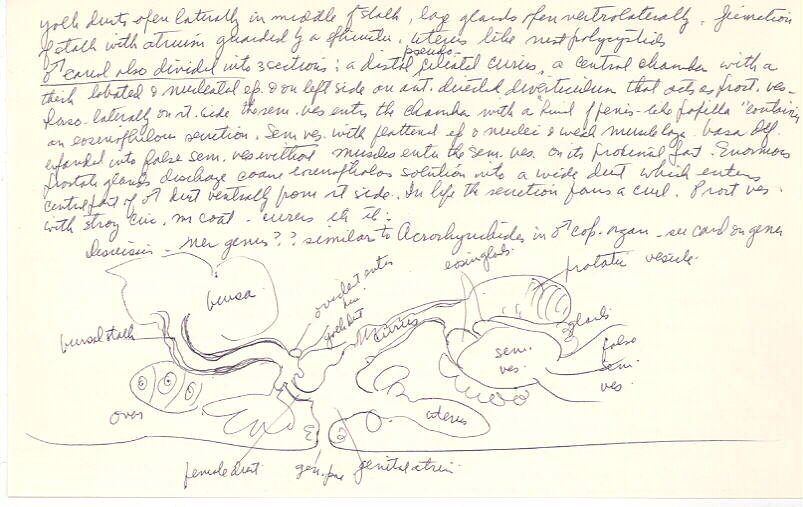 yolk ducts open laterally in middle of stalk, lag glands open ventrolaterally. Junction
of stalk with atrium guarded by a sphincter. Uterus like most polycystids
♂ canal also divided into 3 sections: a distal pseudo-ciliated cirrus, a central chamber with a
thick lobated & nucleated ep. & on left side an ant. directed diverticulum that acts as prost. ves-
Dorso-laterally on rt. side the sem. ves enters the chamber with a "kind of penis-like papilla" containing
an eosinophilous secretion. Sem ves. with flattened ep & nuclei & weak muscle layer. Vasa def.
expanded into false sem. ves without muscles enter the sem. ves. on its proximal part. Enormous
prostate glands discharge coarse eosinophilous solution into a wide duct which enters
central part of ♂ duct ventrally from rt side. In life the secretion forms a curl. Prost ves.
with strong circ. m coat
Discussion - new genus?? similar to Acrorhynchides in ♂ cop. organ - see card on genus
bursa
oviduct enters
yolk duct
cirrus
eosin glands
prostatic vesicle
bursal stalk
glands
sem.
ves.
false
sem
ves.
ovar
uterus
female duct
gen. pore
genital atrium